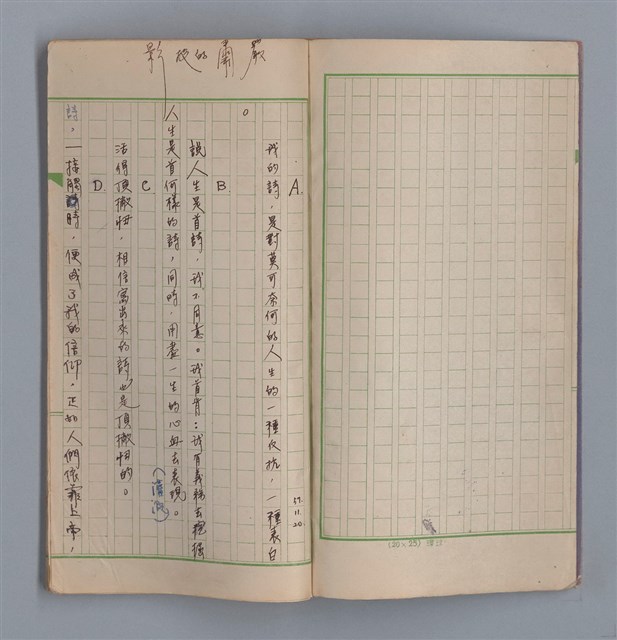 嚴肅的後影
A.
我的詩，是對莫可奈何的人生的一種反抗，一種表白
。
57.11.20.
B.
說人生是首詩，我不同意。我首肯：我有義務去挖掘
人生是首何樣的詩，同時，用盡一生的心血去表現。
（演沉）
C
活得頂撤野，相信寫出來的詩也是頂撤野的。
D.
詩，一接觸時，便成了我的信仰。正如人們依靠上帝，
(20×25)